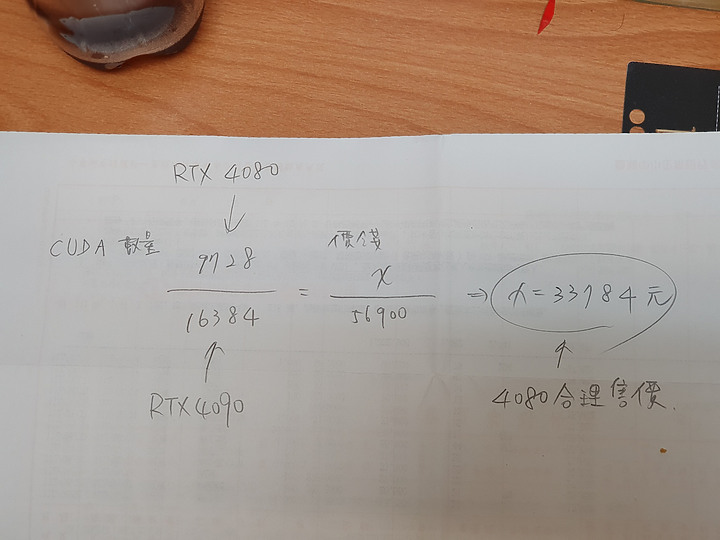 RTX 4080
↓
CUDA 數量 9728 / 16384 = 價錢 x / 56900 ⇒ x = 33784 元
↑ ↑
RTX 4090 4080合理售價.